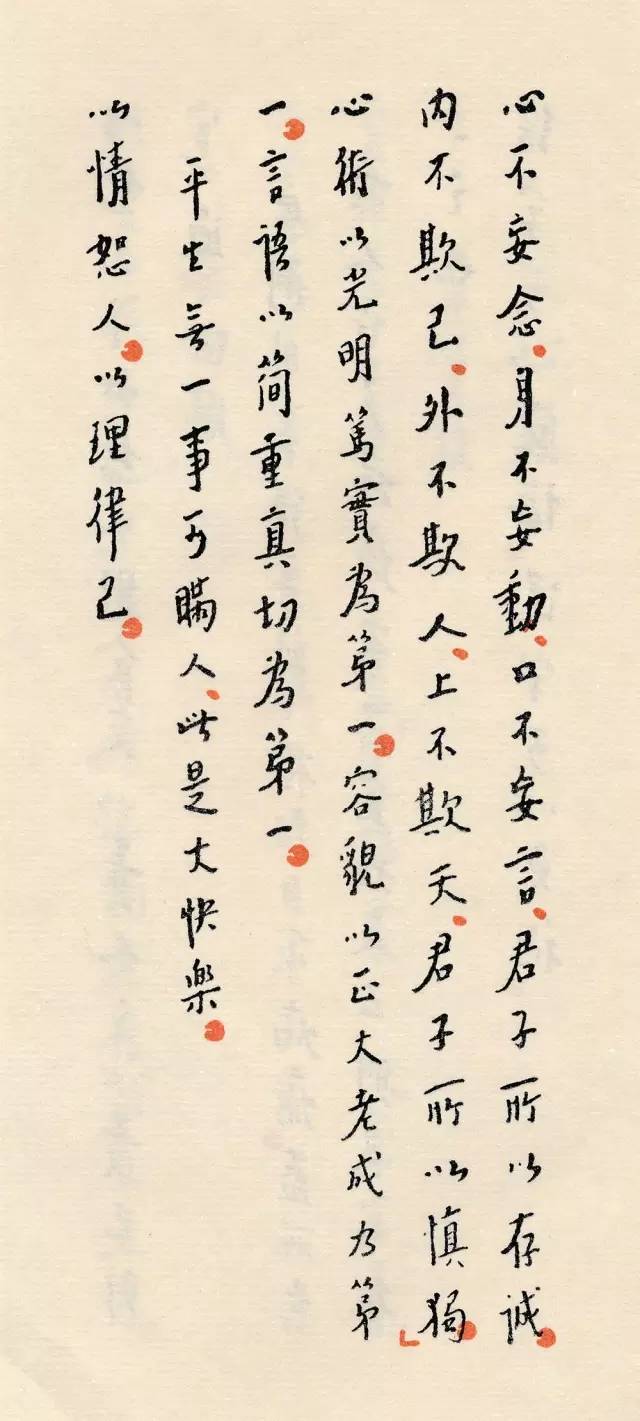 心不妄念、身不妄動、口不妄言、君子所以存誠。
内不欺己、外不欺人、上不欺天、君子所以慎独。
心術以光明篤實為第一。容貌以正大老成为第
一。言语以简重真切為第一。
平生無一事可瞞人、此是大快樂。
以情恕人。以理律己。